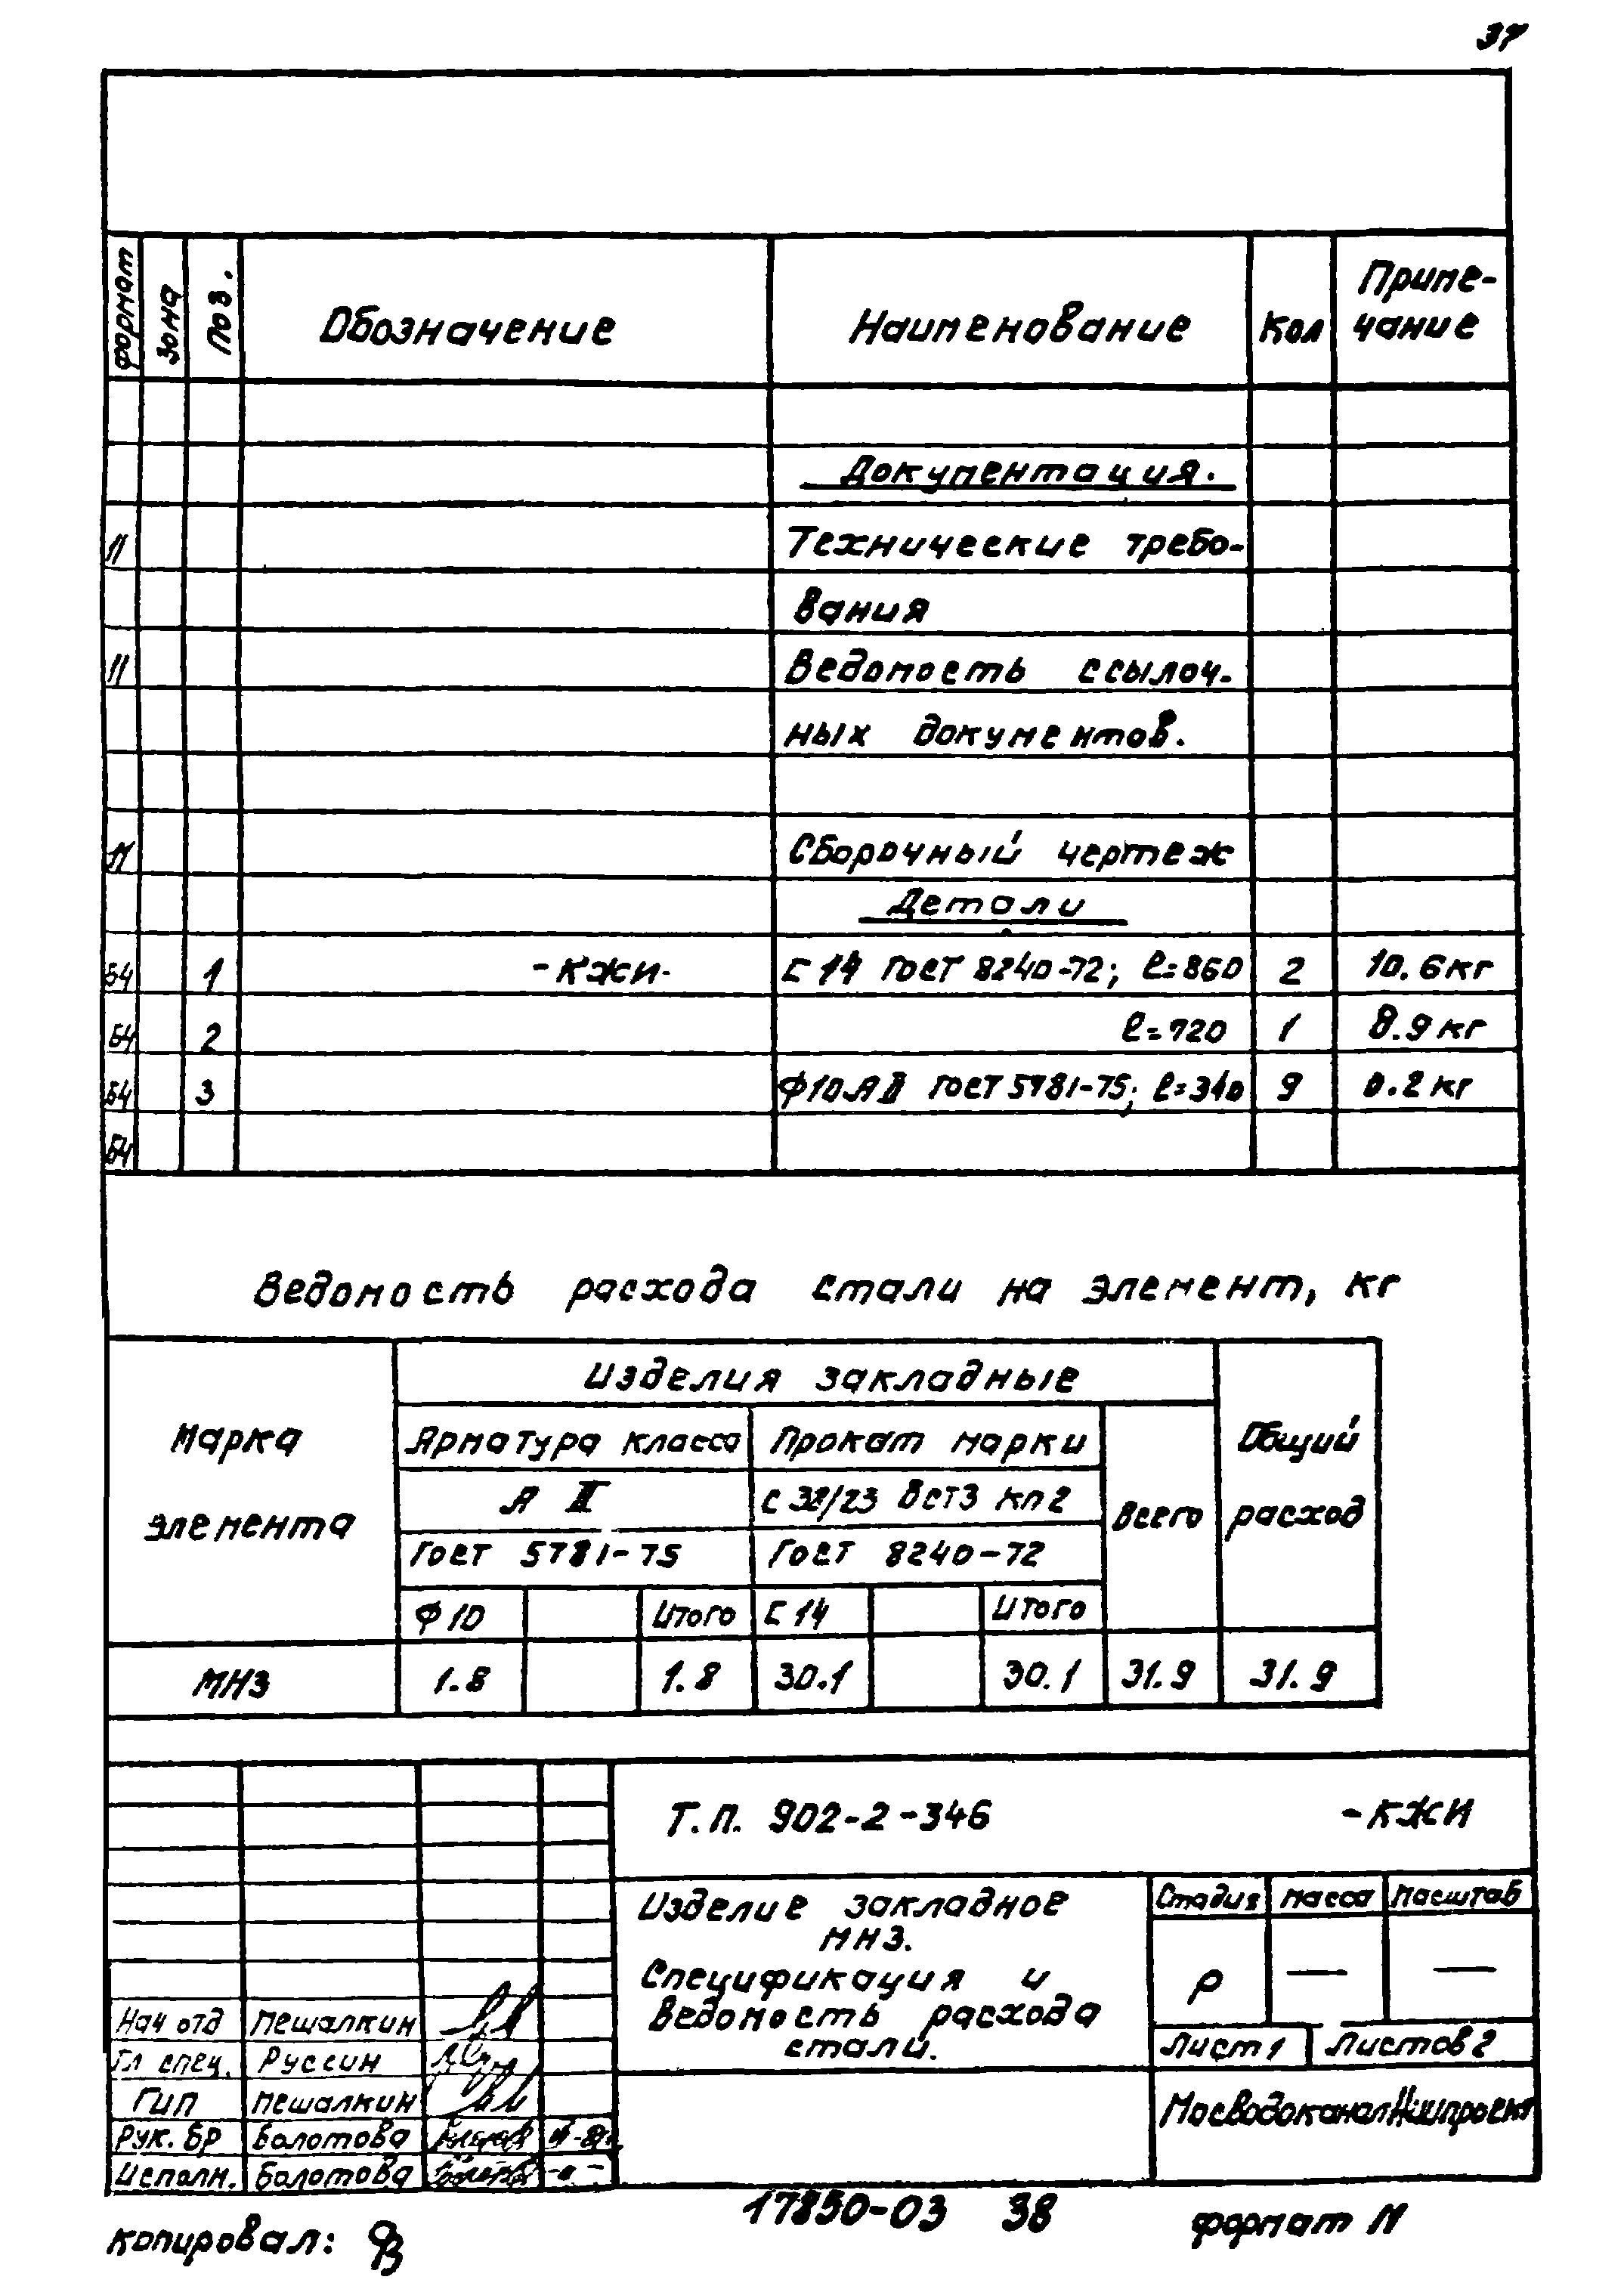 37
Формат Зона Поз. Обозначение Наименование Кол Приме-
чание
Документация.
11 Технические требо-
вания
11 Ведомость ссылоч-
ных документов.
11 Сборочный чертеж
Детали
Б4 1 -КЖИ- С 14 ГОСТ 8240-72; ℓ=860 2 10.6кг
Б4 2 ℓ=720 1 8.9кг
Б4 3 Ф10АII ГОСТ 5781-75; ℓ=310 9 0.2кг
Б4
Ведомость расхода стали на элемент, кг
Марка элемента
Изделия закладные
Общий расход
Арматура класса Прокат марки Всего
А II С 38/23 Вст3 кп2
ГОСТ 5781-75 ГОСТ 8240-72
Ф10 Итого С 14 Итого
МН3 1.8 1.8 30.1 30.1 31.9 31.9
Т.П. 902-2-346 -КЖИ
Изделие закладное
МН3.
Спецификация и
ведомость расхода
стали.
Стадия Масса Масштаб
Р — —
Лист 1 Листов 2
МосводоканалНИИпроект
Нач отд Пешалкин
Гл спец. Руссин
ГИП Пешалкин
Рук. БР Болотова
Исполн. Болотова
копировал:
17850-03 38
формат 11